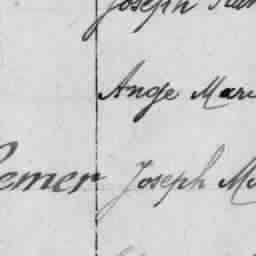 Joseph
Ange Mari
emer Joseph Ma